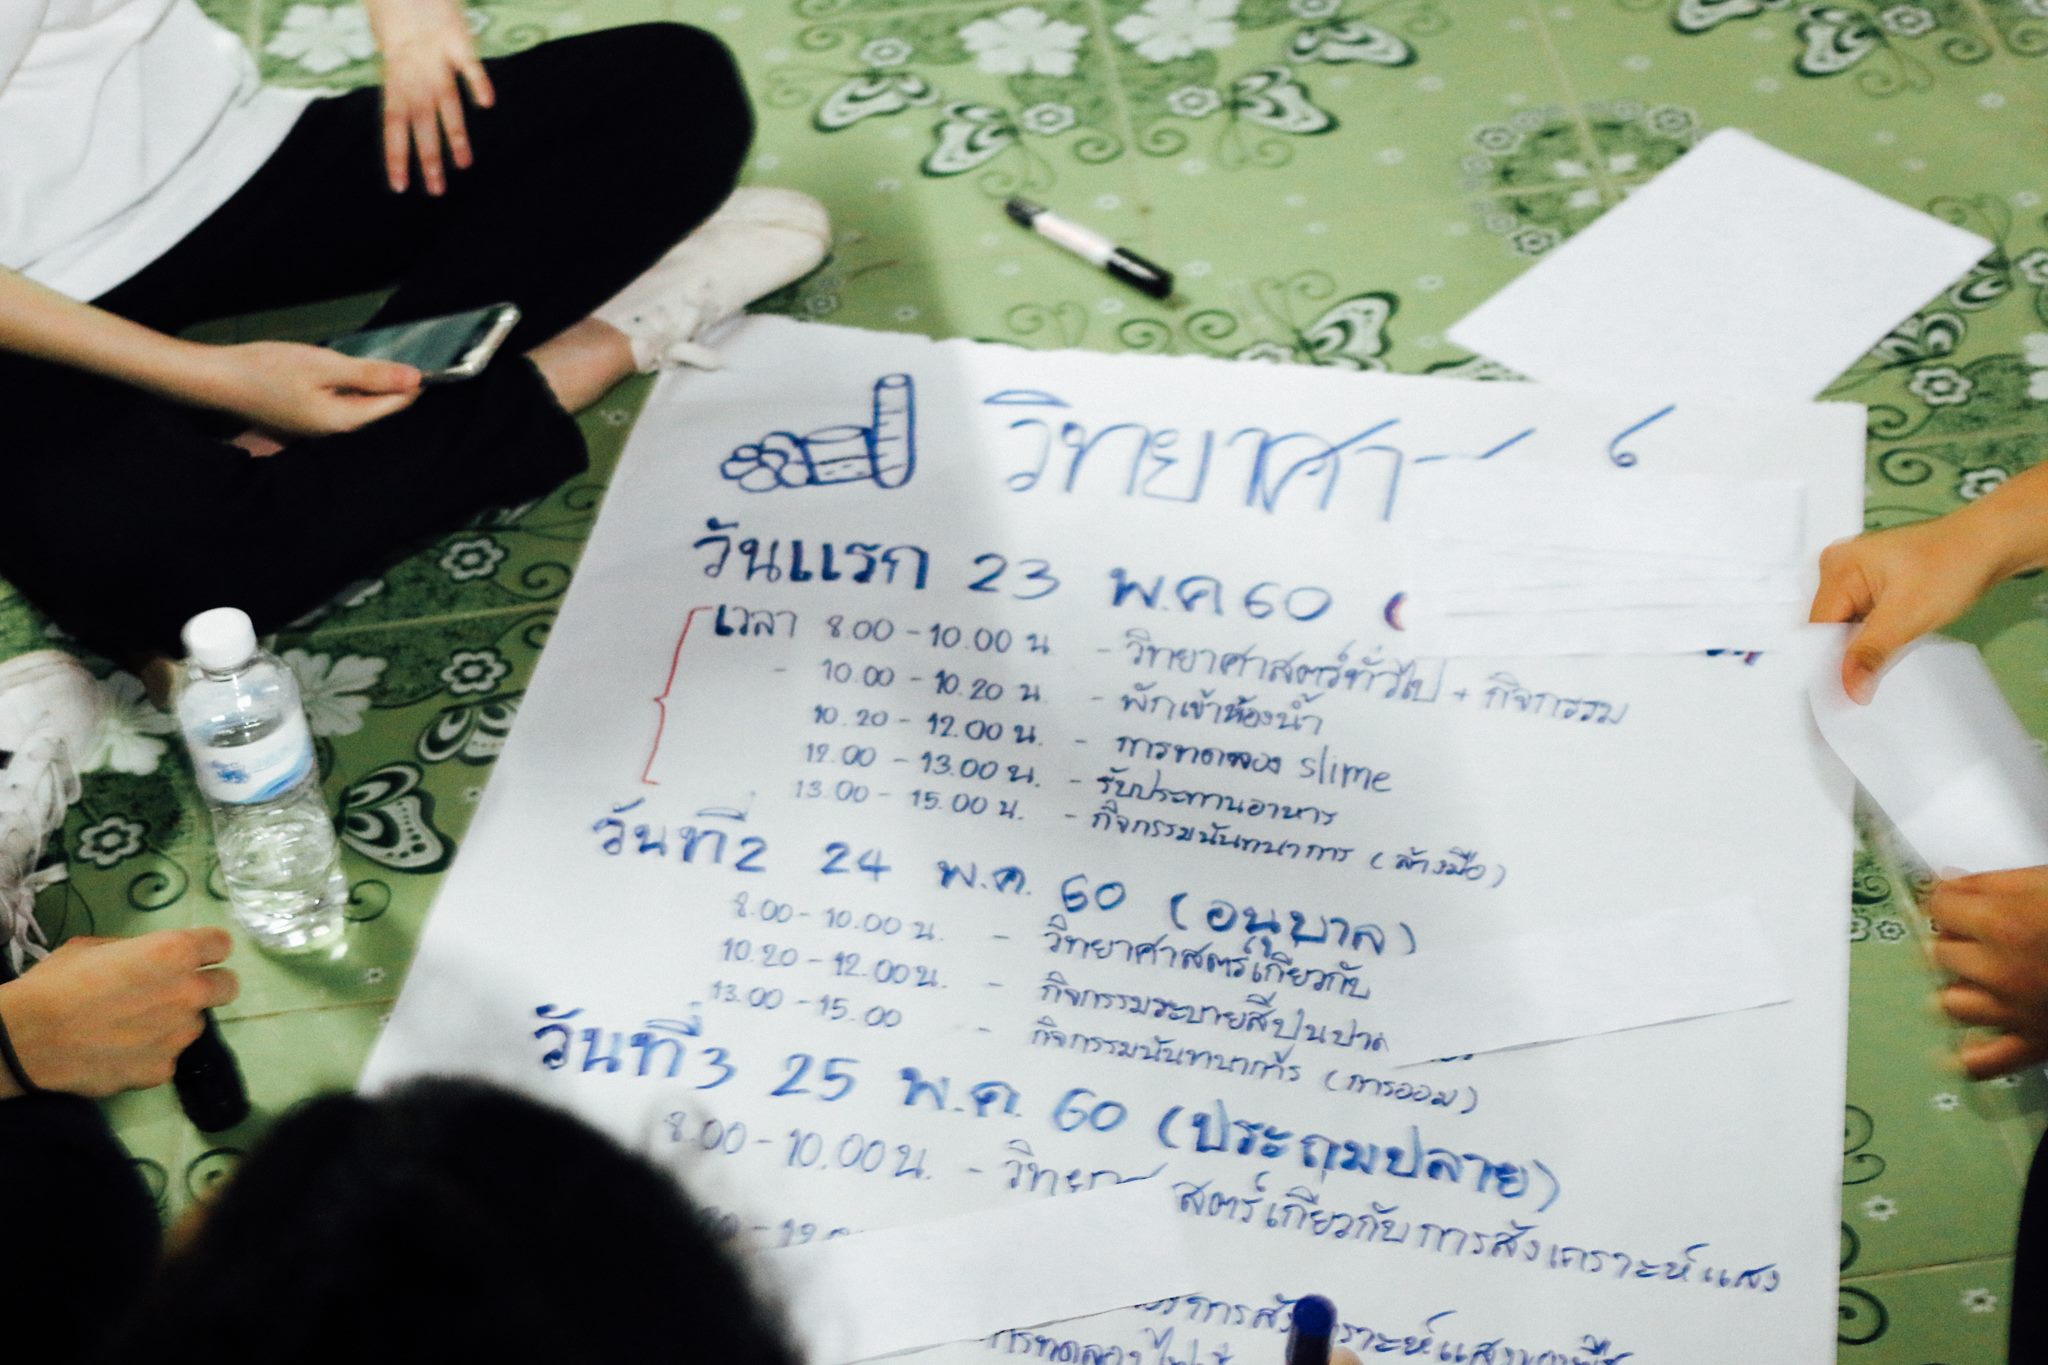 วิทยาศา
วันแรก 23 พ.ค 60 (
เวลา 8.00 - 10.00 น - วิทยาศาสตร์ทั่วไป + กิจกรรม
- 10.00 - 10.20 น - พักเข้าห้องน้ำ
10.20 - 12.00 น. - การทดลอง slime
12.00 - 13.00 น. - รับประทานอาหาร
13.00 - 15.00 น. - กิจกรรมนันทนาการ (ล้างมือ)
วันที่2 24 พ.ค. 60 (อนุบาล)
8.00 - 10.00 น. - วิทยาศาสตร์เกี่ยวกับ
10.20 - 12.00 น. - กิจกรรมระบายสีปูนปาด
13.00 - 15.00 - กิจกรรมนันทนาการ (การออม)
วันที่3 25 พ.ค. 60 (ประถมปลาย)
8.00 - 10.00 น. - วิทย สตร์เกี่ยวกับการสังเคราะห์แสง
การทดลอง